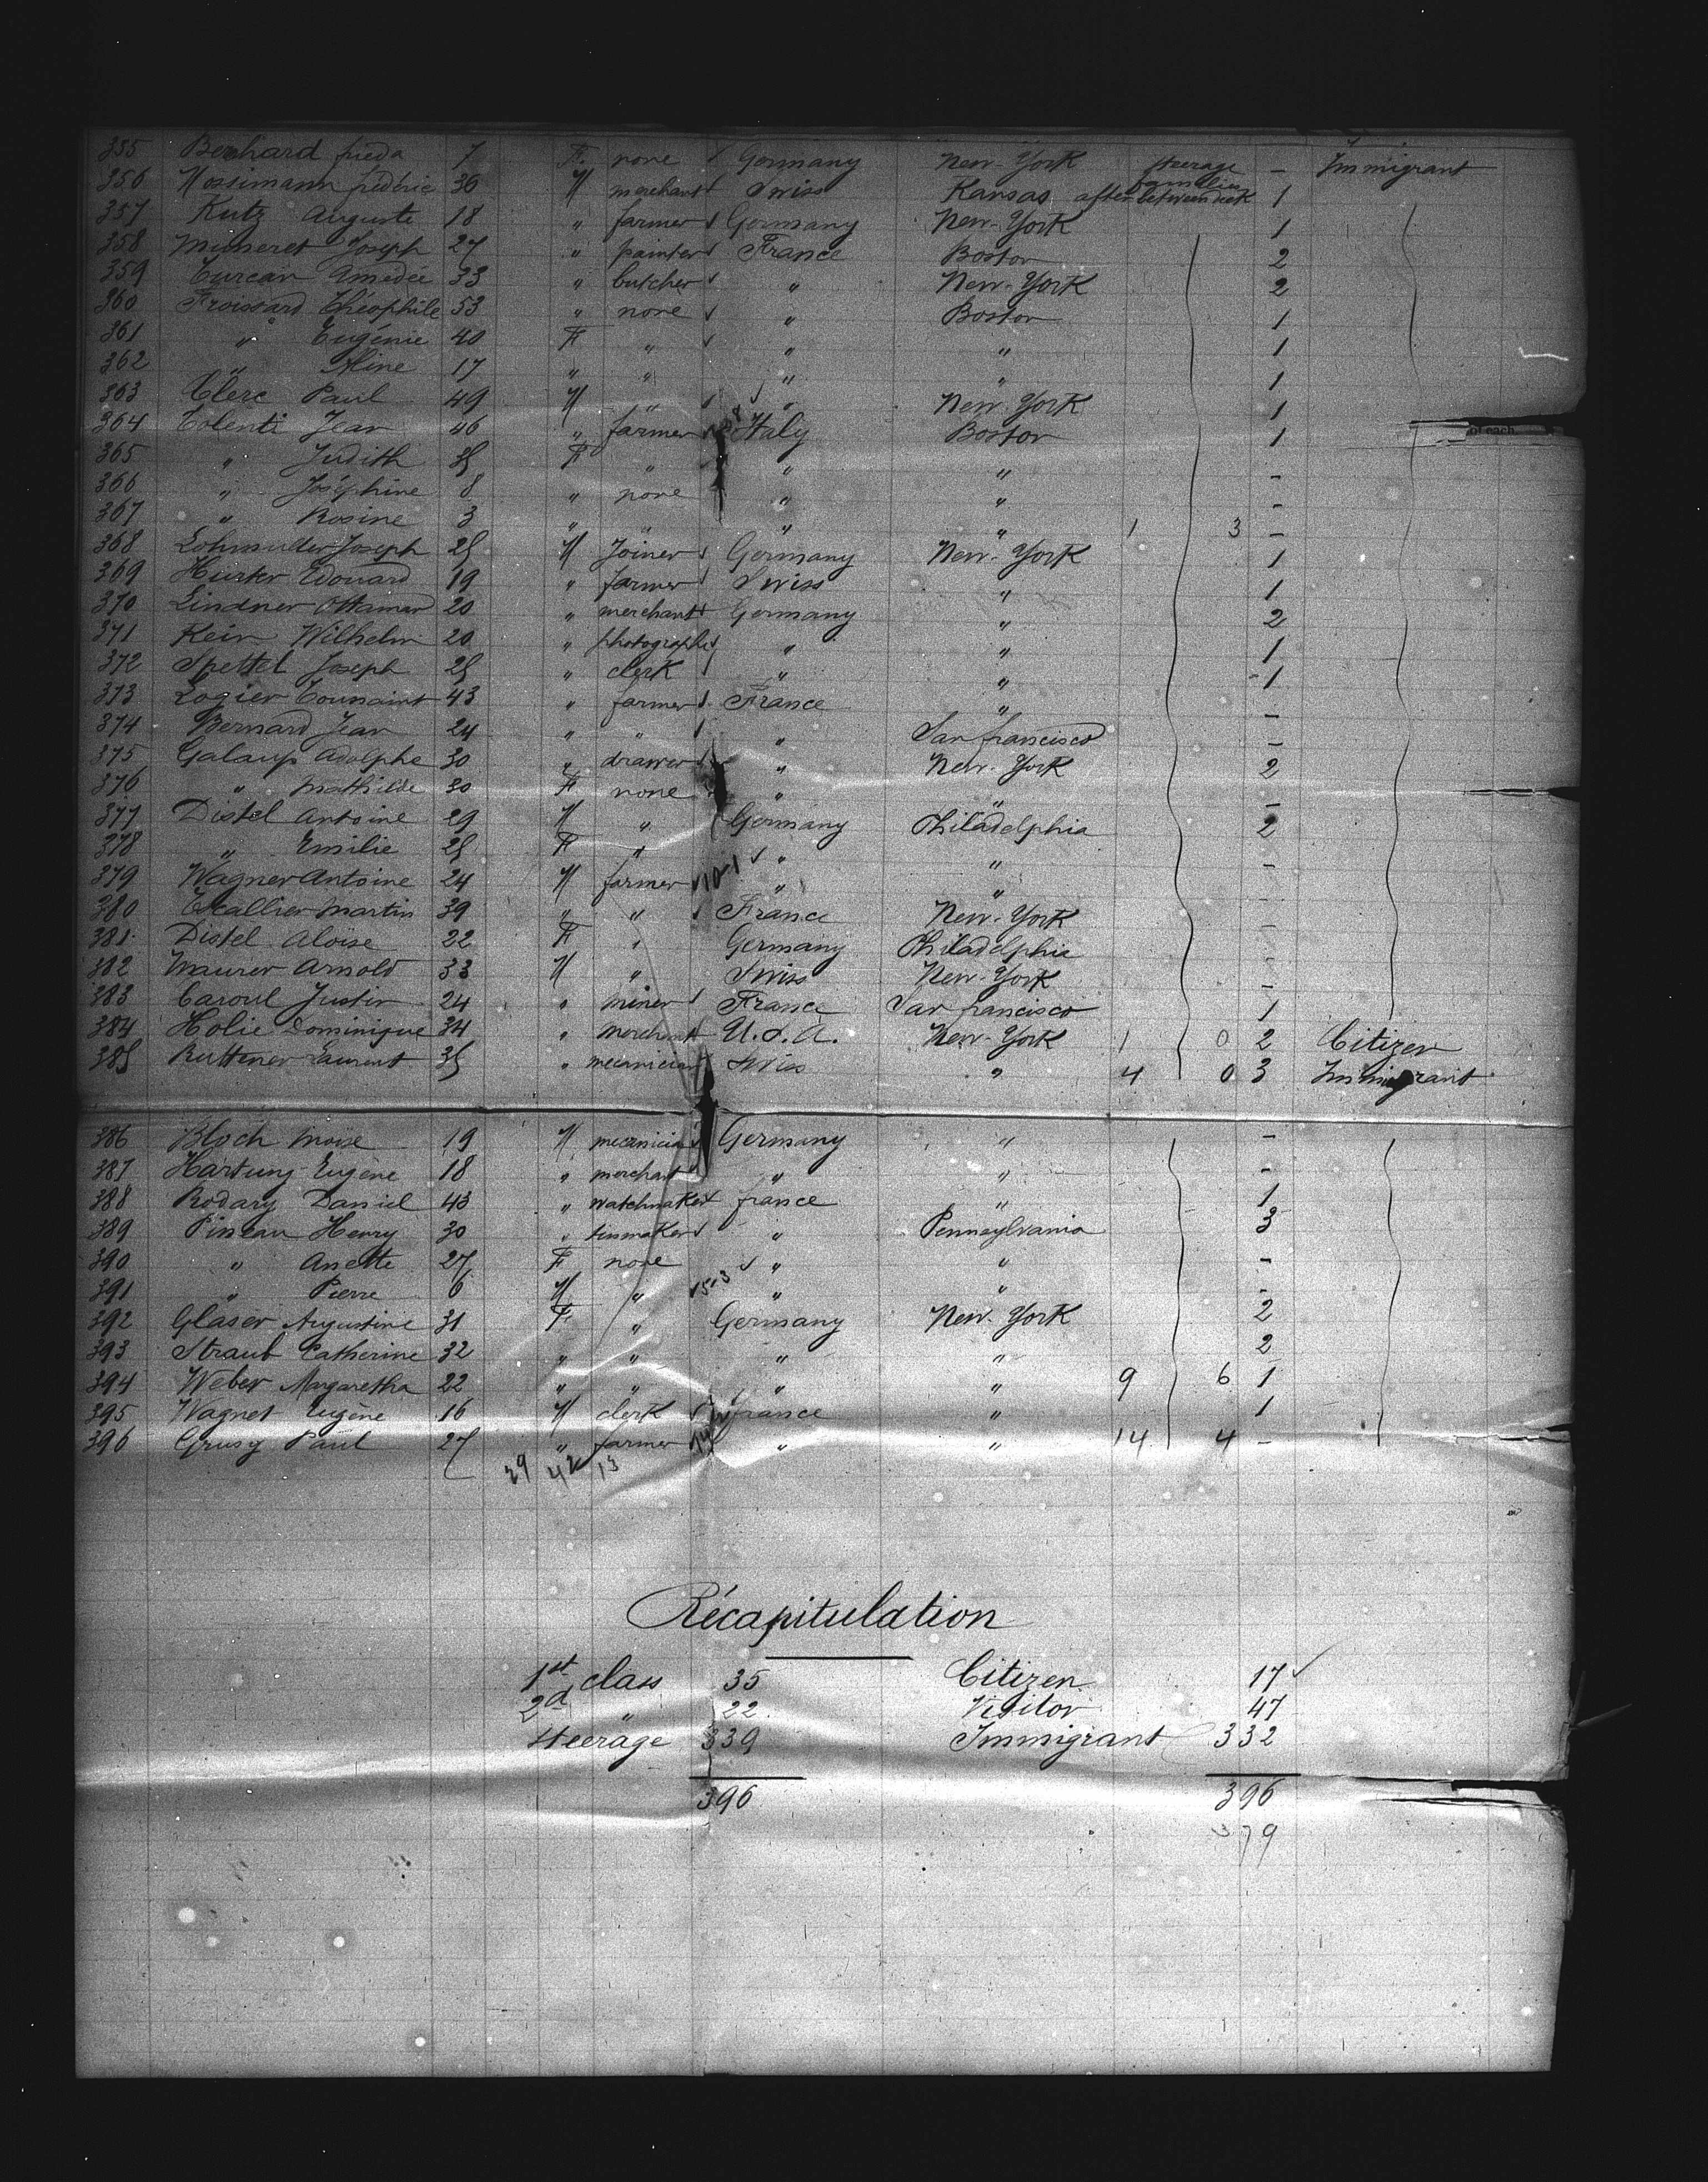 355 Berhard frieda 7 F. none Germany New-York steerage – Immigrant
356 Mossimann frédéric 36 M merchant Swiss Kansas after between deck 1
357 Kutz Auguste 18 " farmer Germany New-York 1
358 Muneret Joseph 27 " painter France Boston 2
359 Turcan Amedée 33 " butcher " New-York 2
360 Froissard Théophile 53 " none " Boston 1
361 " Eugénie 40 F " " " 1
362 " Aline 17 " " " " 1
363 Clerc Paul 49 M " " New-York 1
364 Tolenti Jean 46 " farmer Italy Boston 1
365 " Judith 35 F " " " –
366 " Joséphine 8 " none " " –
367 " Rosine 3 " " " " 1 3 –
368 Lohmuller Joseph 25 M Joiner Germany New-York 1
369 Hurter Edouard 19 " farmer Swiss " 1
370 Lindner Ottamar 20 " merchant Germany " 2
371 Kein Wilhelm 20 " photograph " " 1
372 Spettel Joseph 25 " clerk " " 1
373 Logier Toussaint 43 " farmer France " –
374 Bernard Jean 24 " " " San francisco –
375 Galaup Adolphe 30 " drawer " New-York 2
376 " Mathilde 30 F none " " –
377 Distel Antoine 29 M " Germany Philadelphia 2
378 " Emilie 25 F " " " –
379 Wagner Antoine 24 M farmer 10-1 " " –
380 Escallier Martin 39 " " France New-York –
381 Distel Aloïse 22 F " Germany Philadelphia –
382 Maurer Arnold 33 M " Swiss New-York –
383 Caroul Justin 24 " miner France San francisco 1
384 Holie Dominique 34 " merchant U.S.A. New-York 1 0 2 Citizen
385 Ruttener Laurent 35 " mecanician Swiss " 4 0 3 Immigrant
386 Bloch Moise 19 M mecanician Germany " –
387 Hartung Eugène 18 " merchant " " –
388 Rodary Daniel 43 " watchmaker france " 1
389 Pineau Henry 30 " tinmaker " Pennsylvania 3
390 " Anette 27 F none " " –
391 " Pierre 6 M " 15-3 " " –
392 Glaser Augustine 31 F " Germany New-York 2
393 Straub Catherine 32 " " " " 2
394 Weber Margaretha 22 " " " " 9 6 1
395 Wagnet Eugène 16 M clerk france " 1
396 Grusy Paul 27 " farmer " " 14 4 –
29 42 13
of each.
Récapitulation
1st class 35 Citizen 17
2d " 22 Visitor 47
Steerage 339 Immigrant 332
396 396
379